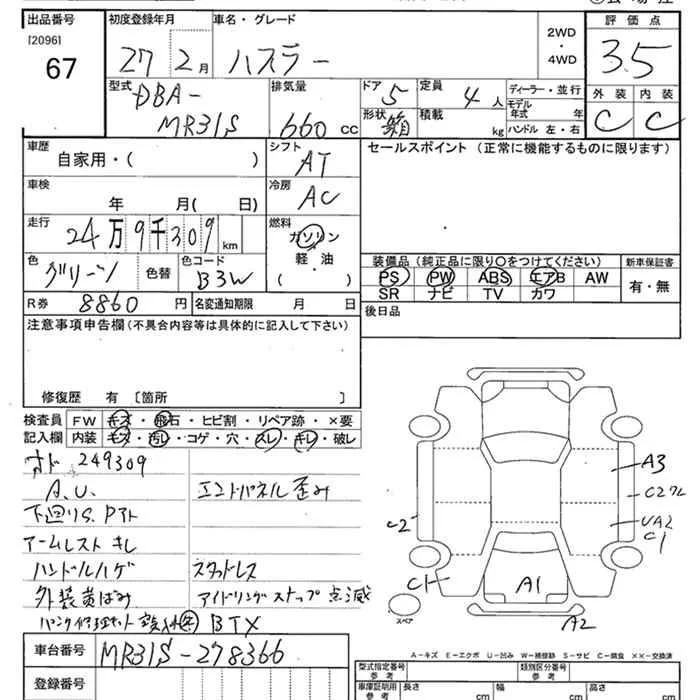 出品番号 初度登録年月 車名・グレード 評価点
[2096] 67 27 2月 ハスラー 2WD ・ 4WD 3.5
型式 DBA-MR31S 排気量 660 cc ドア 5 定員 4人 ディーラー・並行 外装 内装
形状 箱 積載 kg モデル年式 年 ハンドル 左・右 C C
車歴 自家用・( ) シフト AT セールスポイント (正常に機能するものに限ります)
車検 年 月( 日) 冷房 AC
走行 24万9千309 km 燃料 ガソリン 軽油 ( )
色 グリーン 色替 色コード B3W 装備品 (純正品に限り○をつけてください) 新車保証書
PS PW ABS エアB AW 有・無
SR ナビ TV カワ
R券 8860円 名変通知期限 月 日 後日品
注意事項申告欄 (不具合内容等は具体的に記入して下さい)
修復歴 有 〔箇所 〕
検査員 FW キズ・飛石・ヒビ割・リペア跡・×要
記入欄 内装 キズ・汚レ・コゲ・穴・スレ・キレ・破レ
オド 249309
A.U. エンドパネル歪み
下回りS.Pアト
アームレスト キレ
ハンドルハゲ スタッドレス
外装黄ばみ アイドリングストップ 点滅
パンク修理キット BTX
A3
C2
UA2
C1
C2
C1
A1
A2
スペア
A-キズ E-エクボ U-凹み W-補修跡 S-サビ C-腐食 ××-交換済
車台番号 MR31S-278366
登録番号
型式指定番号 参考 類別区分番号 参考
車庫証明用 参考 長さ cm 幅 cm 高さ cm